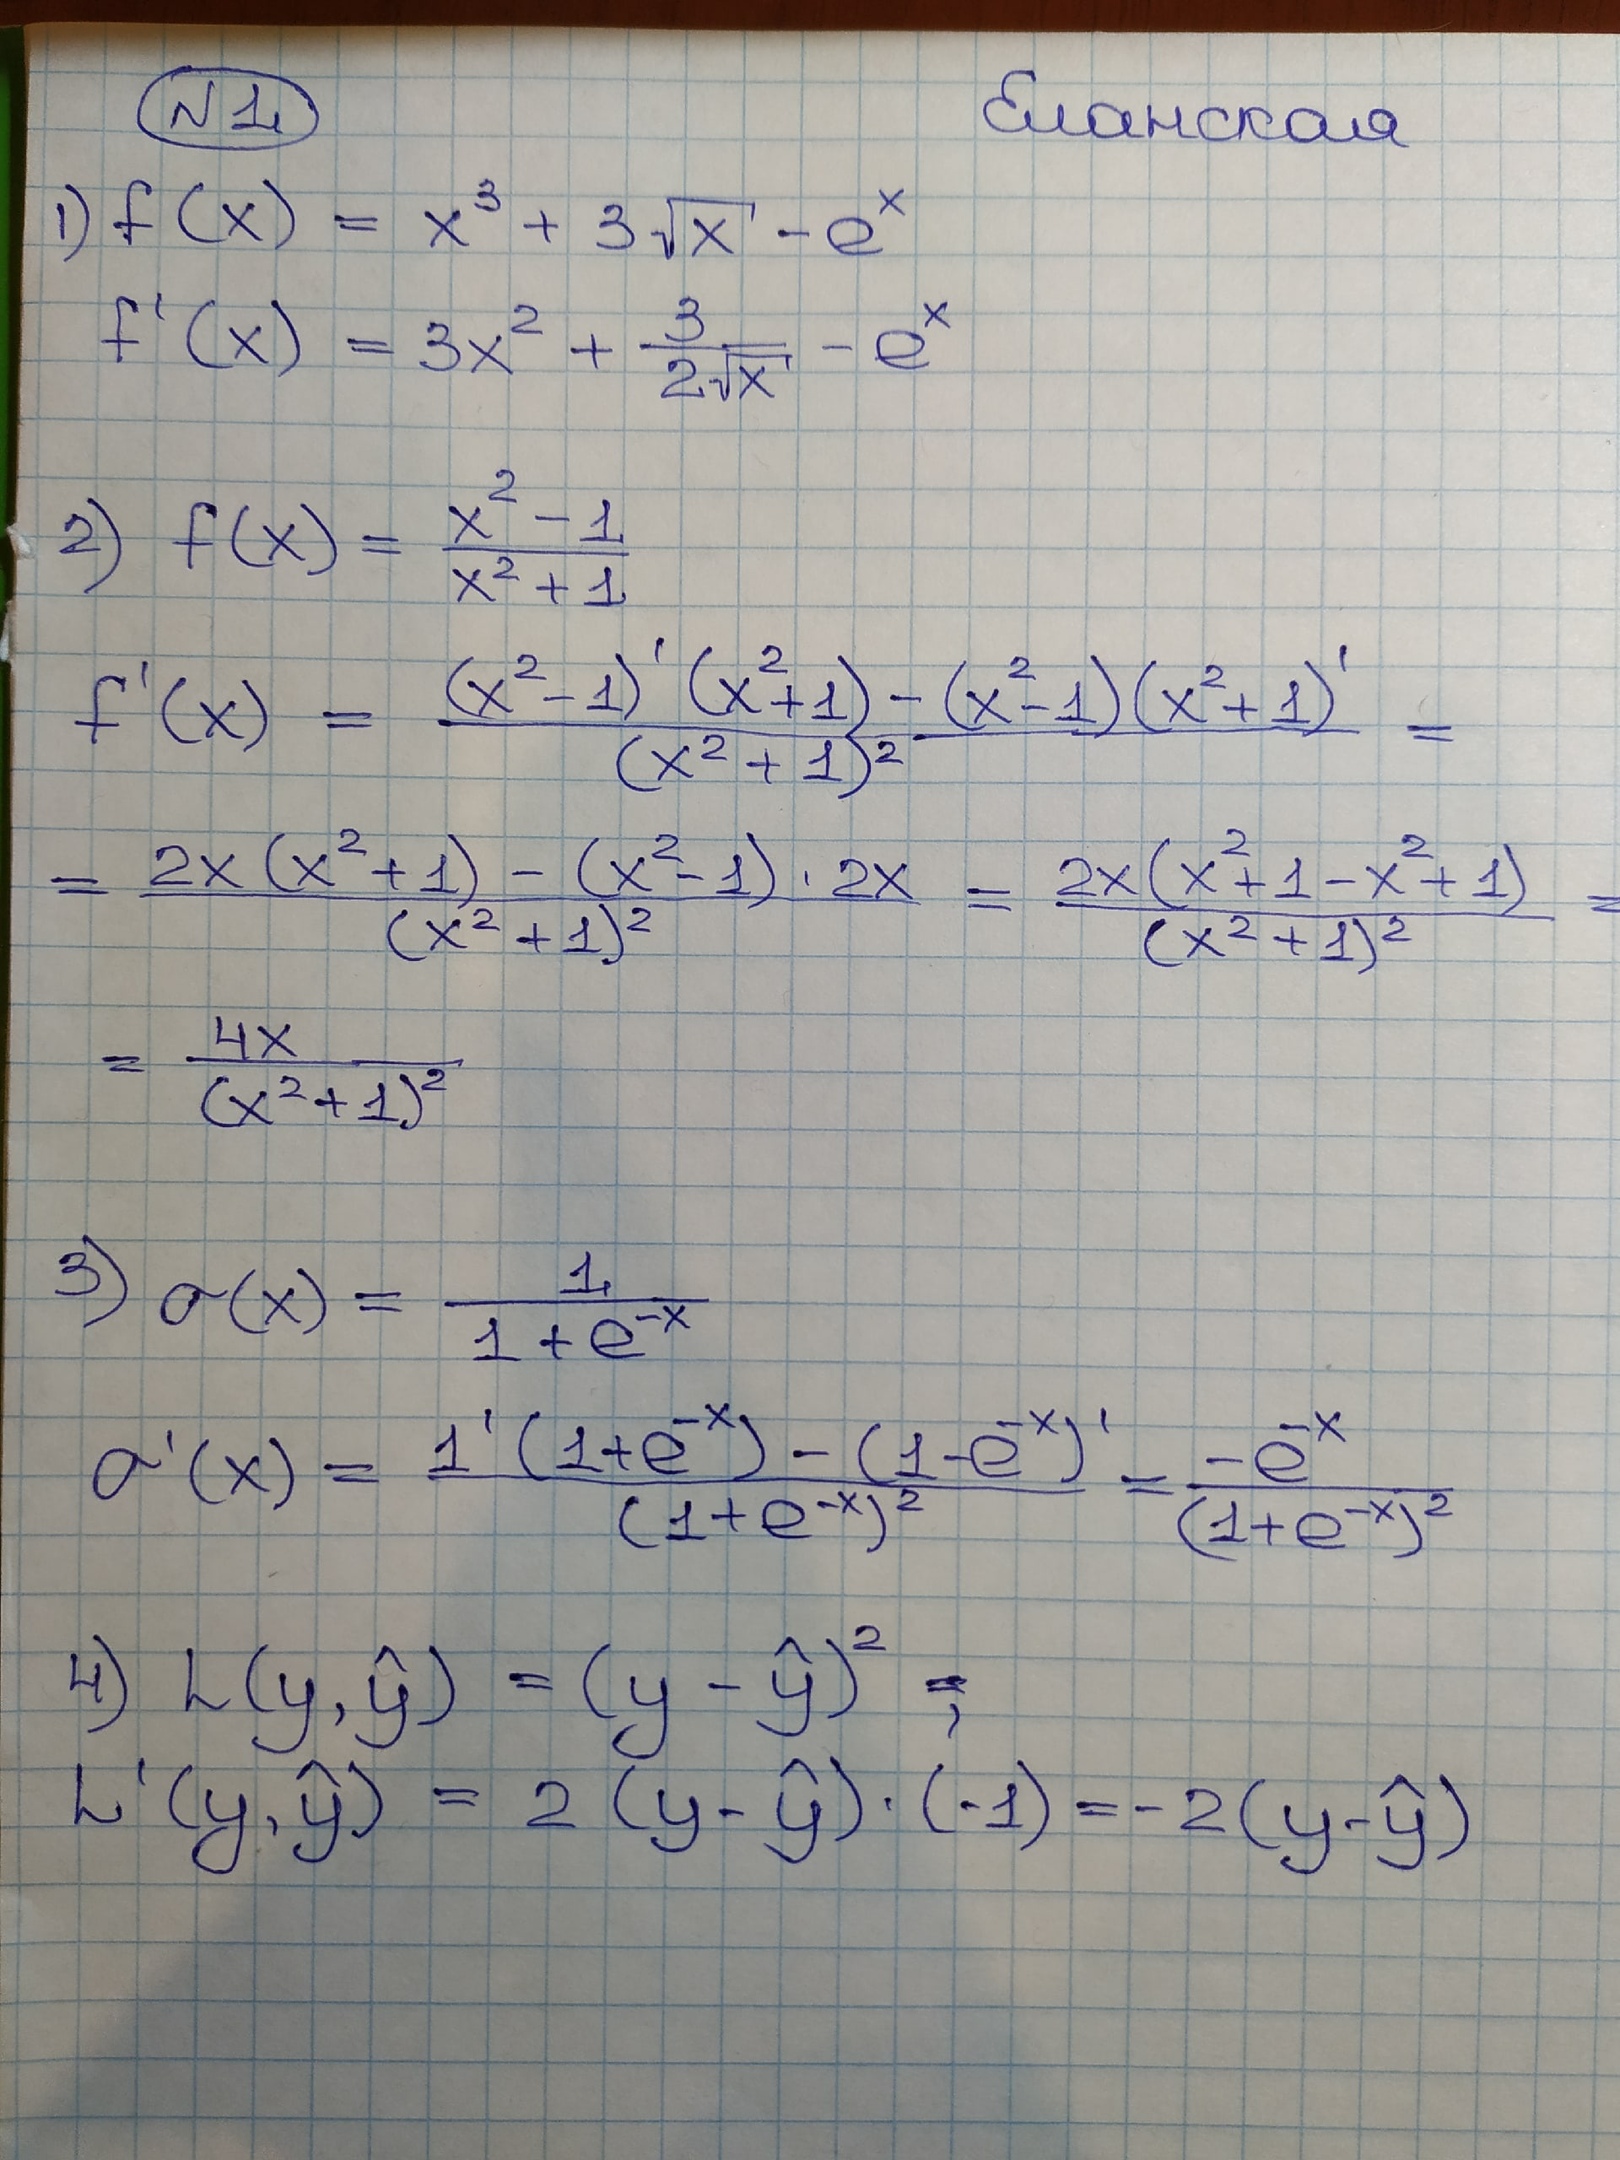 N1.
Еланская
1) f(x) = x³ + 3√x - eˣ
f'(x) = 3x² + 3/(2√x) - eˣ
2) f(x) = (x² - 1)/(x² + 1)
f'(x) = ((x² - 1)'(x² + 1) - (x² - 1)(x² + 1)')/(x² + 1)² =
= (2x(x² + 1) - (x² - 1) · 2x)/(x² + 1)² = (2x(x² + 1 - x² + 1))/(x² + 1)² =
= 4x/(x² + 1)²
3) σ(x) = 1/(1 + e⁻ˣ)
σ'(x) = (1'(1 + e⁻ˣ) - (1 - e⁻ˣ)')/(1 + e⁻ˣ)² = -e⁻ˣ/(1 + e⁻ˣ)²
4) L(y, ŷ) = (y - ŷ)² ;
L'(y, ŷ) = 2(y - ŷ) · (-1) = -2(y - ŷ)